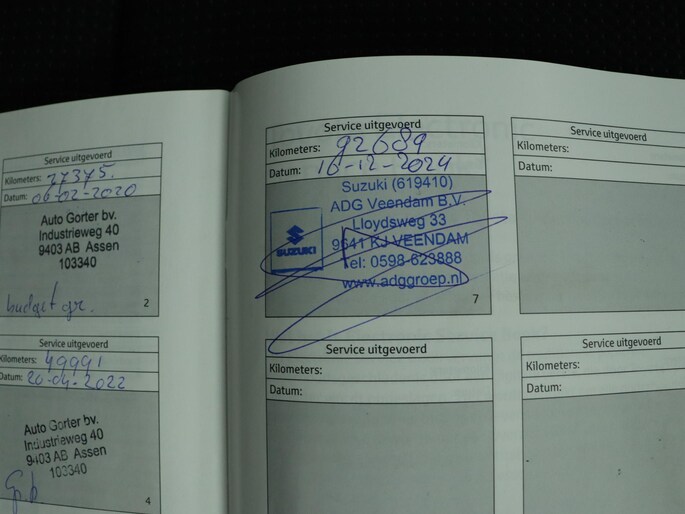 Service uitgevoerd
Kilometers: 27375.
Datum: 06-02-2020
Auto Gorter bv.
Industrieweg 40
9403 AB Assen
103340
budget
2
Service uitgevoerd
Kilometers: 49991
Datum: 20-04-2022
Auto Gorter bv.
Industrieweg 40
9403 AB Assen
103340
4
Service uitgevoerd
Kilometers: 92689
Datum: 16-12-2024
Suzuki (619410)
ADG Veendam B.V.
Lloydsweg 33
9641 KJ VEENDAM
Tel: 0598-623888
www.adggroep.nl
SUZUKI
7
Service uitgevoerd
Kilometers:
Datum:
Service uitgevoerd
Kilometers:
Datum:
Service uitgevoerd
Kilometers:
Datum: